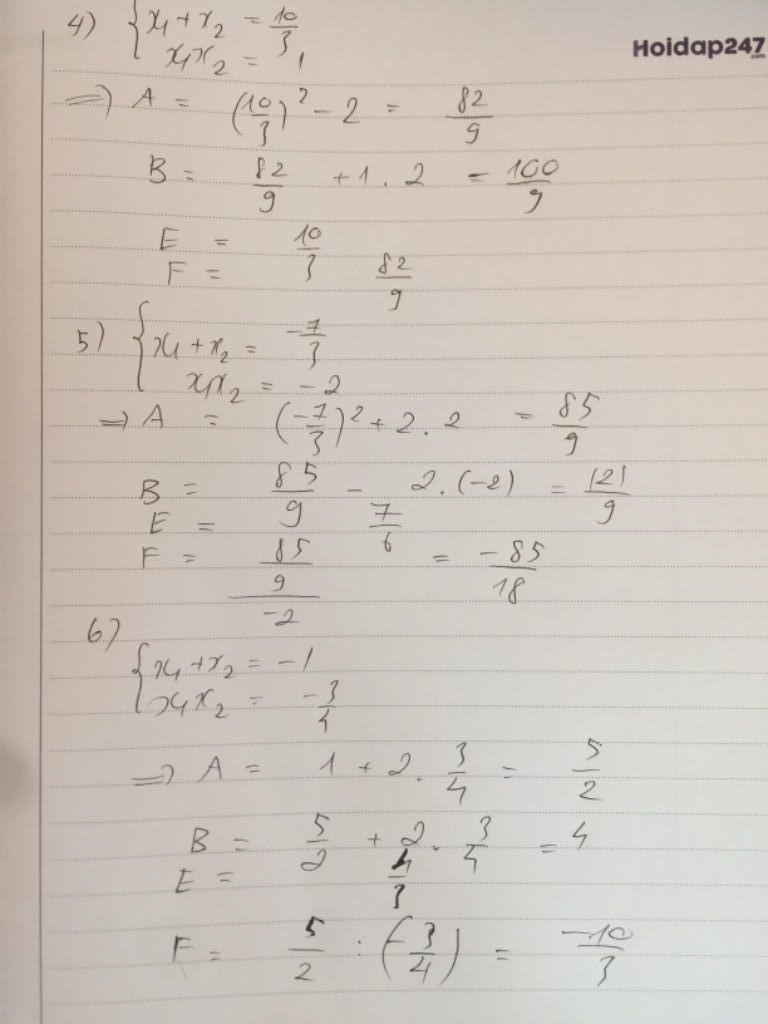 Hoidap247
.com
4) { x₁ + x₂ = 10/3
x₁x₂ = 1
=> A = (10/3)² - 2 = 82/9
B = 82/9 + 1 . 2 = 100/9
E = 10/3
F = 82/9
5) { x₁ + x₂ = -7/3
x₁x₂ = -2
=> A = (-7/3)² + 2 . 2 = 85/9
B = 85/9 - 2 . (-2) = 121/9
E = 7/6
F = 85/9/-2 = -85/18
6)
{ x₁ + x₂ = -1
x₁x₂ = -3/4
=> A = 1 + 2 . 3/4 = 5/2
B = 5/2 + 2 . 3/4 = 4
E = 4/3
F = 5/2 : (-3/4) = -10/3